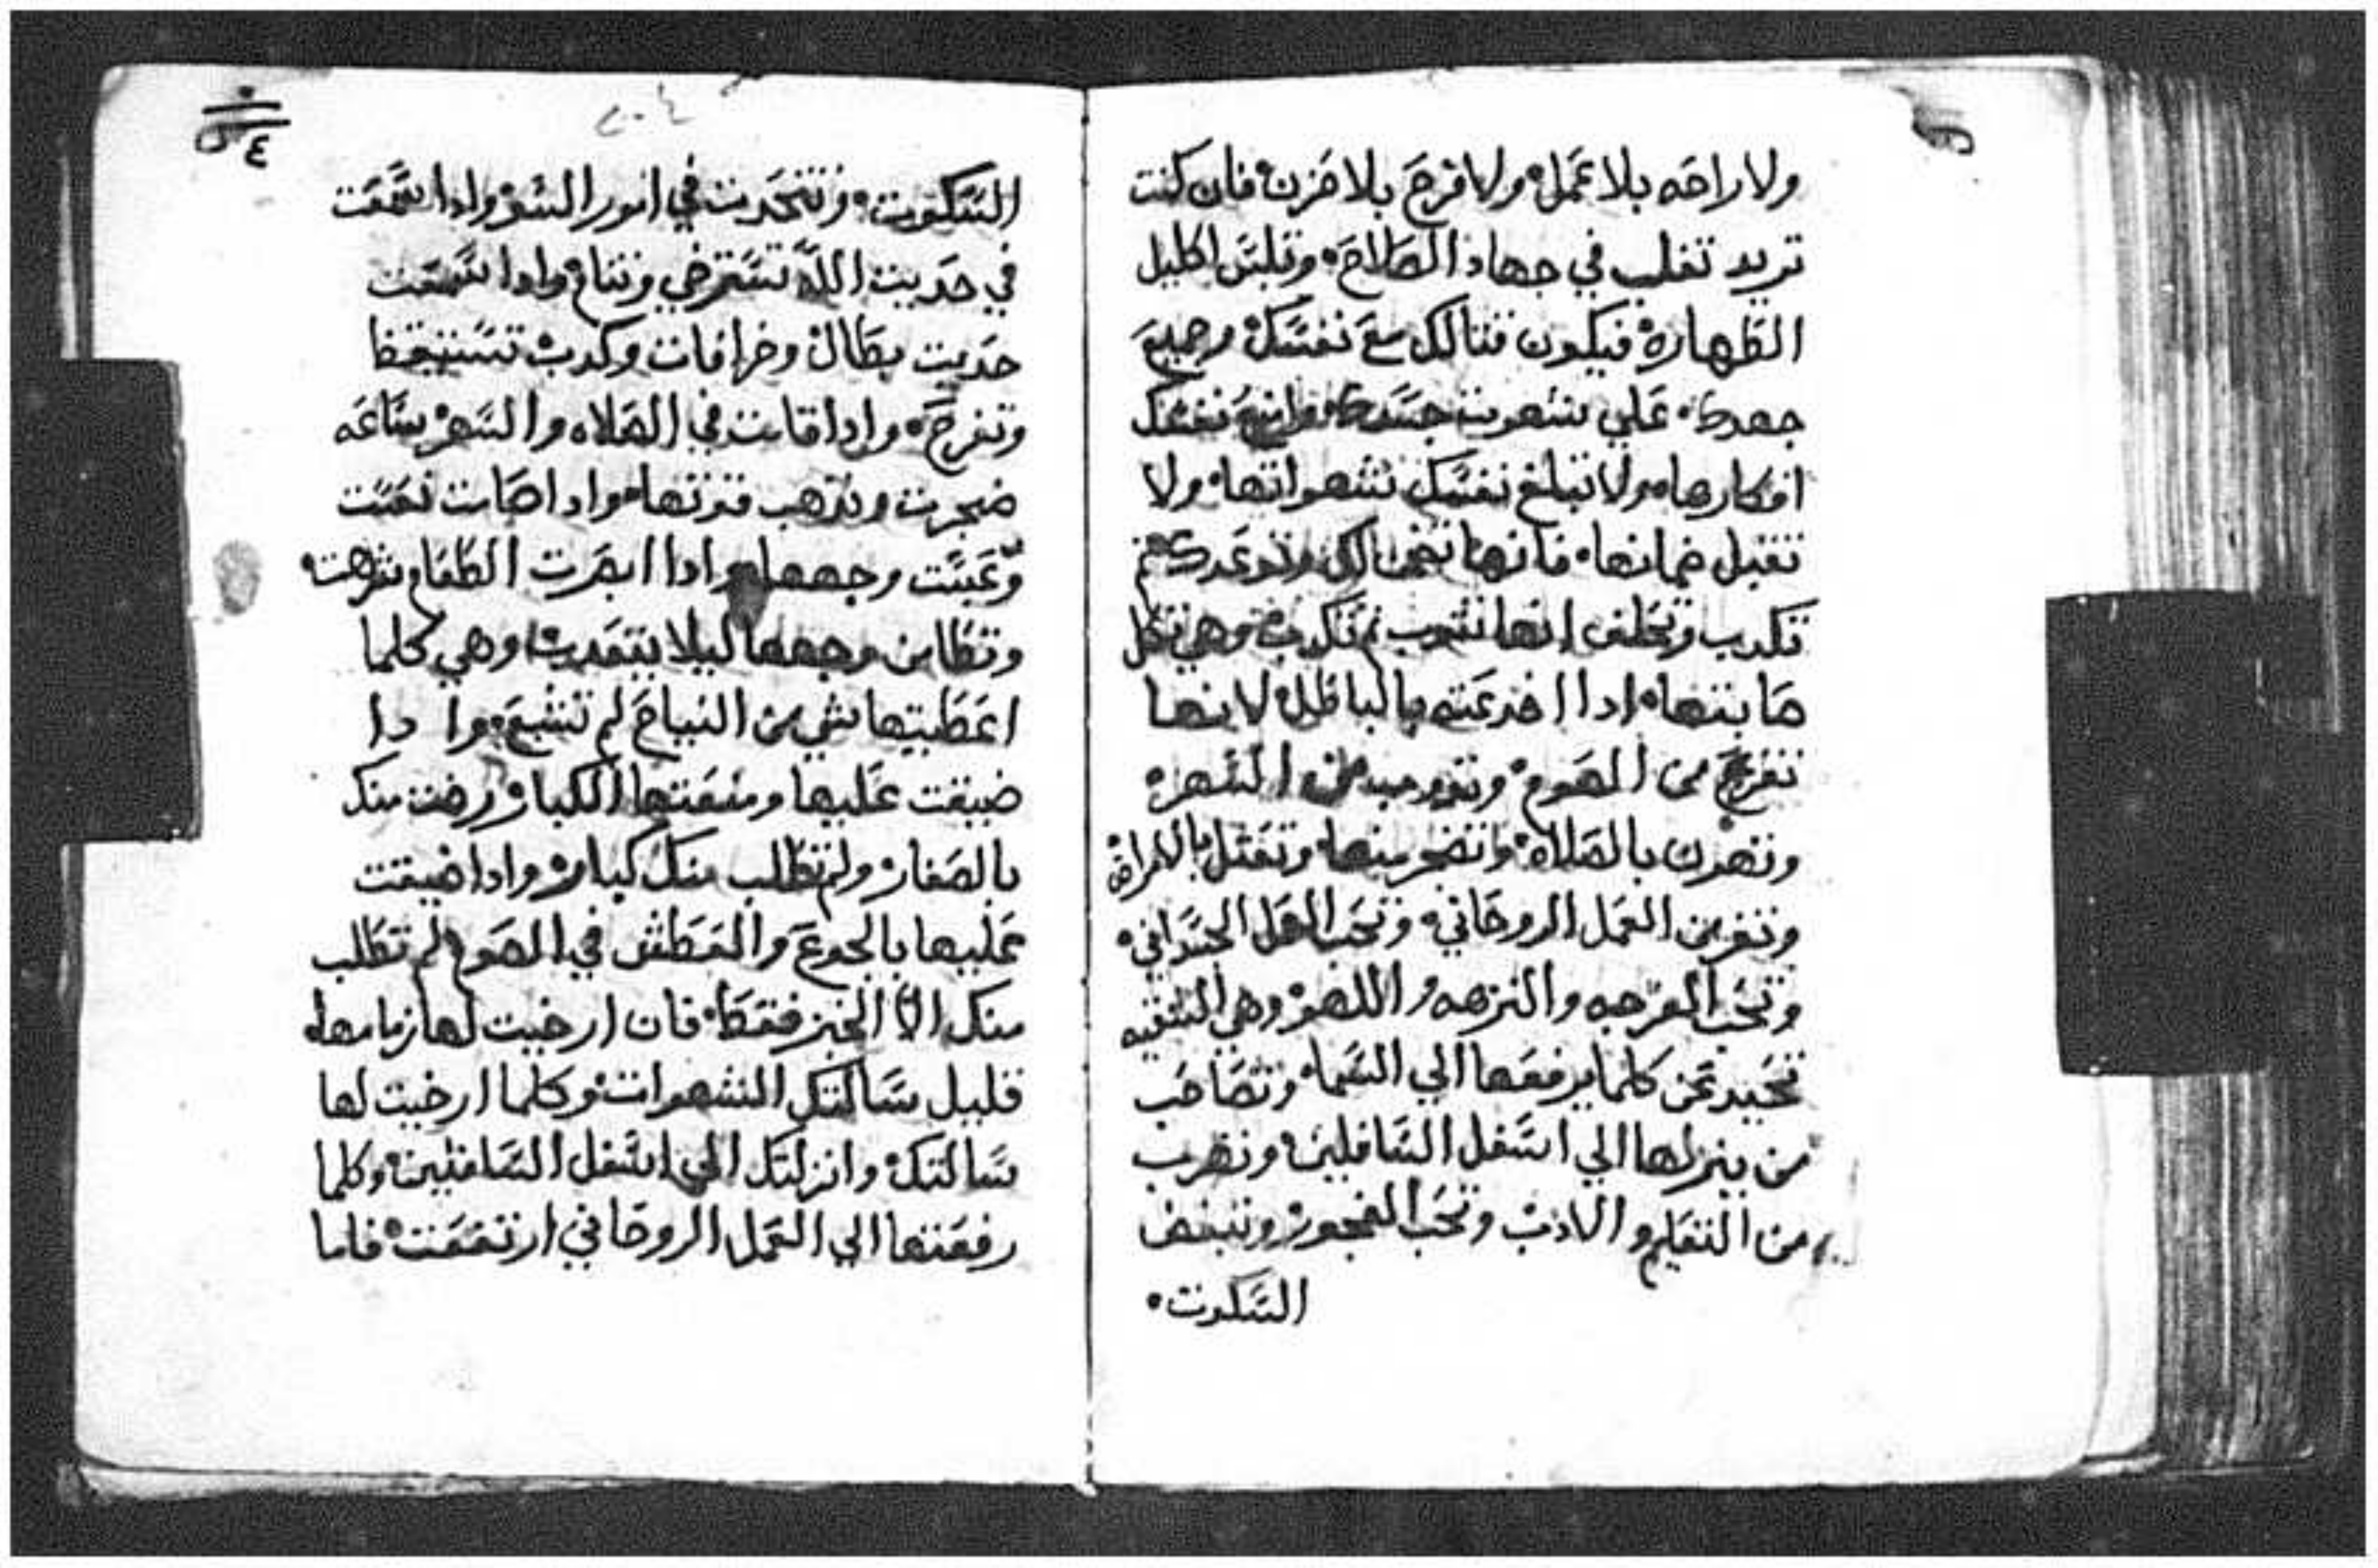 ولا راحه بلا عمل ولا فرح بلا حزن فان كنت
تريد تغلب في جهاد الصلاح وتلبس اكليل
الطهاره فيكون قتالك مع نفسك وجميع
جهدك على شهوت جسدك نفسك
افكارها ولا تبلغ نفسك شهواتها ولا
تقبل ضمانها فانها تضمن لك وتوعدك ثم
تكدب وتحلف انها تتوب ثم تكدب وهي تكل
صابتها ادا اخدعته بالباطل لانها
تفزع من الصوم وتتوجد من السهر
وتهدن بالصلاه وتضجر منها وتفشل بالقراه
وتفر من العمل الروحاني وتحب العمل الجسداني
وتحب الفرجه والنزهه واللهو وهي الشقيه
تحيد عن كلما يرفعها الي السما وتصاحب
من ينزلها الي اسفل السافلين وتهرب
من التعليم والادب وتحب الفجور وتبغض
السكوت
٤
السكوت وتتحدت في امور السو وادا سمعت
في حديت الله تسترخي وتنام وادا سمعت
حديت بطال وخرافات وكدب تستيقظ
وتفرح وادا قامت في الصلاه والسهر ساعه
ضجرت ويدهب قوتها وادا صامت نعست
وعبست وجهها وادا ابصرت الطعام شرهت
وتطامن وجهها ليلا وهي كلما
اعطيتها شي من النياح لم تشبع وا دا
ضيقت عليها ومنعتها الكبار رضت منك
بالصغار ولم تطلب منك كبار وادا ضيقت
عليها بالجوع والعطش في الصوم لم تطلب
منك الا الخبز فقط فان ارخيت لها زمامها
قليل سالتك الشهوات وكلما ارخيت لها
سالتك وانزلتك الي اسفل السافلين وكلما
رفعتها الي العمل الروحاني ارتفعت فاما